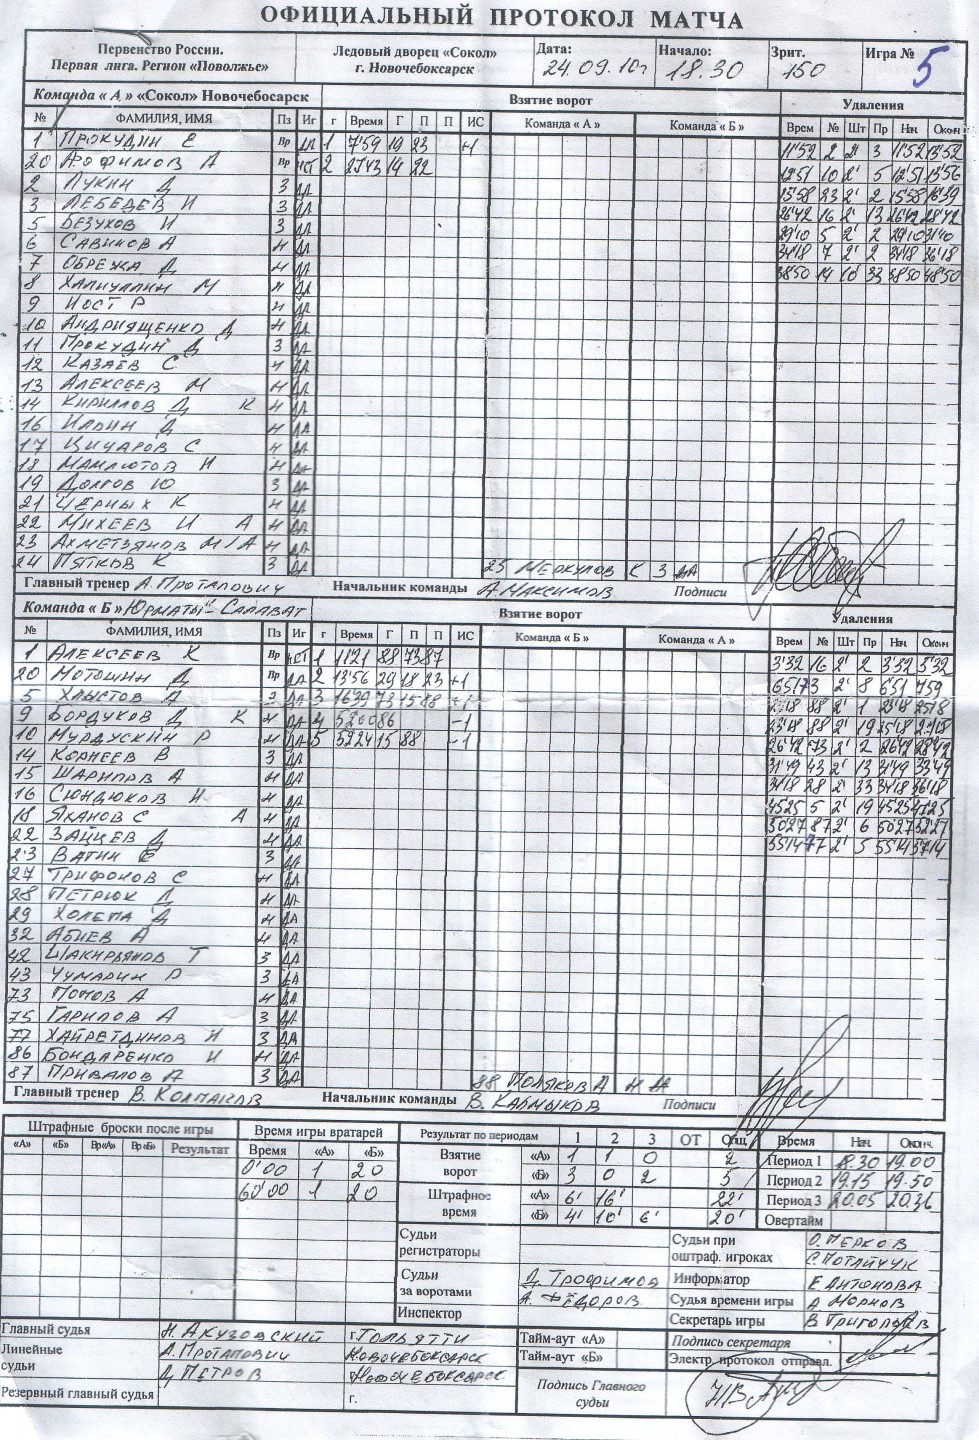 ОФИЦИАЛЬНЫЙ ПРОТОКОЛ МАТЧА
Первенство России.
Первая лига. Регион «Поволжье»
Ледовый дворец «Сокол»
г. Новочебоксарск
Дата:
24.09.10г
Начало:
18.30
Зрит.
150
Игра №
5
Команда « А » «Сокол» Новочебосарск
Взятие ворот
Удаления
№ ФАМИЛИЯ, ИМЯ Пз Иг г Время Г П П ИС Команда « А » Команда « Б » Врем № Шт Пр Нач. Оконч
1 ПРОКУДИН Е Вр ДА 1 7'59 19 23 +1 11'52 2 2' 3 11'52 13'52
20 А Вр НЕТ 2 27'43 14 22 12'51 10 2' 5 12'51 13'56
2 ЛУКИН Д З ДА 15'58 23 2' 2 15'58 16'39
3 ЛЕБЕДЕВ И З ДА 26'42 16 2' 13 26'42 28'42
5 БЕЗУХОВ И З ДА 29'10 5 2' 2 29'10 31'10
6 САВИНОВ А Н ДА 34'18 7 2' 2 34'18 36'18
7 ОБРЕЖА Д Н ДА 38'50 14 10' 33 38'50 48'50
8 ХАПИУЛЛИН М Н ДА
9 ИОСТ Р Н ДА
10 АНДРИЯЩЕНКО Д Н ДА
11 ПРОКУДИН Д З ДА
12 КАЗАЕВ С Н ДА
13 АЛЕКСЕЕВ М Н ДА
14 КИРИЛЛОВ Д К Н ДА
16 ИЛЬИН Д Н ДА
17 ЦИЧАРОВ С Н ДА
18 МАМЛЮТОВ И Н ДА
19 ДОЛГОВ Ю З ДА
21 ЧЕРНЫХ К Н ДА
22 МИХЕЕВ И А Н ДА
23 АХМЕТЗЯНОВ М А Н ДА
24 ПЯТКОВ К З ДА 25 МЕРКУЛОВ К З ДА
Главный тренер А. ПРОТАПОВИЧ Начальник команды А. МАКСИМОВ Подписи
Команда « Б » ЮРМАТЫ - САЛАВАТ
Взятие ворот
Удаления
№ ФАМИЛИЯ, ИМЯ Пз Иг г Время Г П П ИС Команда « Б » Команда « А » Врем № Шт Пр Нач Оконч
1 АЛЕКСЕЕВ К Вр НЕТ 1 11'21 88 73 87 3'32 16 2' 2 3'32 5'32
20 МОТОШИН Д Вр ДА 2 13'56 29 18 23 +1 6'51 73 2' 8 6'51 7'59
5 ХЛЫСТОВ А З ДА 3 16'39 73 15 88 +1 88 2' 1
9 БОРДУКОВ Д К Н ДА 4 52'00 86 -1 88 2' 19
10 Р Н ДА 5 52'24 15 88 -1 26'42 73 2' 2 26'42 28'42
14 КОРНЕЕВ В З ДА 31'49 43 2' 13 31'49 33'49
15 ШАРИПОВ А Н ДА 34'18 28 2' 33 34'18 36'18
16 СЮНДЮКОВ И Н ДА 45'25 5 2' 19 45'25 47'25
18 ЯКАНОВ С А Н ДА 50'27 87 2' 6 50'27 52'27
22 ЗАЙЦЕВ Д Н ДА 55'14 77 2' 5 55'14 57'14
23 ВАГИН Е З ДА
27 ТРИФОНОВ С Н ДА
28 ПЕТРЮК Д Н ДА
29 ХОЛЕПА Д Н ДА
32 АБИЕВ А Н ДА
42 ШАКИРЬЯНОВ Т З ДА
43 ЧУМАРИН Р З ДА
73 ПОПОВ А Н ДА
75 ГАРИПОВ А З ДА
77 ХАЙРЕТДИНОВ И З ДА
86 БОНДАРЕНКО И Н ДА
87 ПРИВАЛОВ А З ДА 88 ПОЛЯКОВ А Н ДА
Главный тренер В. КОЛПАКОВ Начальник команды В. КАЛМЫКОВ Подписи
Штрафные броски после игры
«А» «Б» Вр«А» Вр«Б» Результат
Время игры вратарей
Время «А» «Б»
0'00 1 20
60'00 1 20
Результат по периодам 1 2 3 ОТ Общ.
Взятие ворот «А» 1 1 0 2
«Б» 3 0 2 5
Штрафное время «А» 6' 16' 22'
«Б» 4' 10' 6' 20'
Время Нач. Оконч.
Период 1 18.30 19.00
Период 2 19.15 19.50
Период 3 20.05 20.36
Овертайм
Судьи регистраторы
Судьи за воротами Д. ТРОФИМОВ
А. ФЁДОРОВ
Инспектор
Судьи при оштраф. игроках О. ПЕРКОВ
С. ПОТАЙЧУК
Информатор Е АНТОНОВА
Судья времени игры А
Секретарь игры В ГРИГОРЬЕВ
Главный судья Н. АКУЗОВСКИЙ г. ТОЛЬЯТТИ
Линейные судьи А. ПРОТАПОВИЧ НОВОЧЕБОКСАРСК
Д ПЕТРОВ НОВОЧЕБОКСАРСК
Резервный главный судья г.
Тайм-аут «А»
Тайм-аут «Б»
Подпись секретаря
Электр. протокол отправл.
Подпись Главного судьи